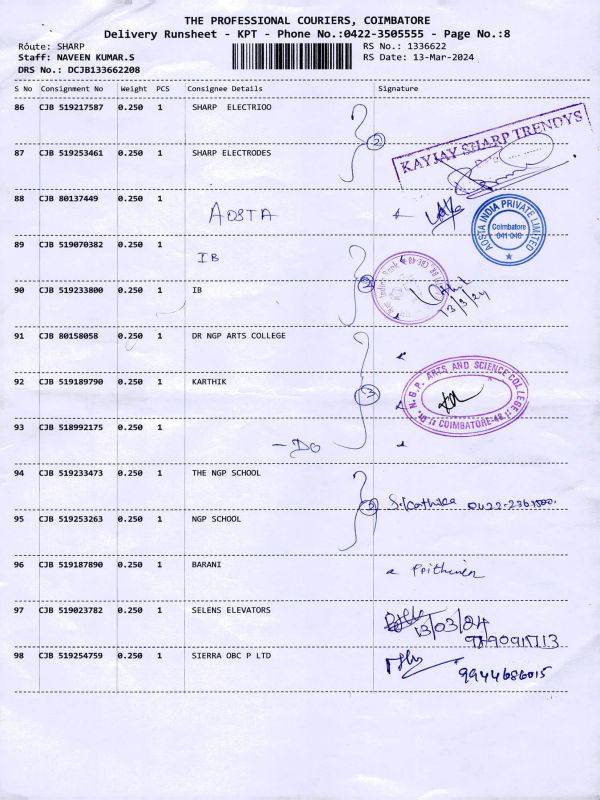 THE PROFESSIONAL COURIERS, COIMBATORE
Delivery Runsheet - KPT - Phone No.:0422-3505555 - Page No.:8
Route: SHARP RS No.: 1336622
Staff: NAVEEN KUMAR.S RS Date: 13-Mar-2024
DRS No.: DCJB133662208
S No Consignment No Weight PCS Consignee Details Signature
86 CJB 519217587 0.250 1 SHARP ELECTRIOO
KAYJAY SHARP TRENDYS
87 CJB 519253461 0.250 1 SHARP ELECTRODES 2
88 CJB 80137449 0.250 1 AOSTA
AOSTA INDIA PRIVATE LIMITED
Coimbatore
641 046
89 CJB 519070382 0.250 1 IB
90 CJB 519233800 0.250 1 IB 2
Indian Bank
13/3/24
91 CJB 80158058 0.250 1 DR NGP ARTS COLLEGE
92 CJB 519189790 0.250 1 KARTHIK 3
Dr. N.G.P. ARTS AND SCIENCE COLLEGE
COIMBATORE-48
93 CJB 518992175 0.250 1 - DO
94 CJB 519233473 0.250 1 THE NGP SCHOOL
95 CJB 519253263 0.250 1 NGP SCHOOL
96 CJB 519187890 0.250 1 BARANI
97 CJB 519023782 0.250 1 SELENS ELEVATORS
13/03/24
98 CJB 519254759 0.250 1 SIERRA OBC P LTD
9944686015